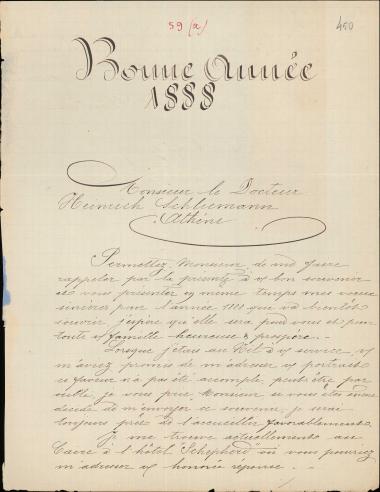 59 (a)
450
Bonne Année
1888
Monsieur le Docteur
Heinrich Schliemann
Athène
Permettez Monsieur de me faire
rappeler par la présente à v/ bon souvenir
et vous présenter en même temps mes vœux
sincères pour l'année 1888 que va bientôt
souvrir j'éspère qu'elle sera pour vous et pour
toute v/ famille heureuse & prospère. –
Lorsque j'étais au Nil à v/ service v/
m'aviez promis de m'adresser v/ portrait
faveur n'a pas été accompli, peut être par
oublie, je vous prie, Monsieur si vous êtes
décidé de m'envoyer ce souvenir je serai
toujours prêt de l'accueillir favorablement.
Je me trouve actuellement au
Caire à l'hôtel Schepherd où vous pourriez
m'adresser v/ honorée réponse. –